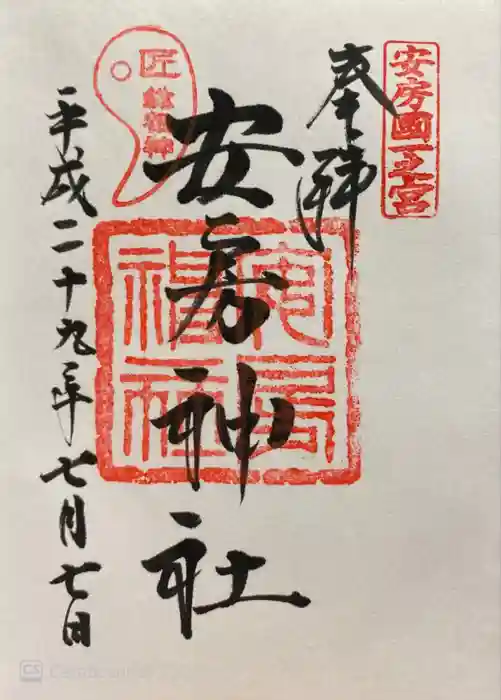 安房國一之宮
奉拝
安房神社
安房神社
匠
平成二十九年七月七日
CS CamScanner